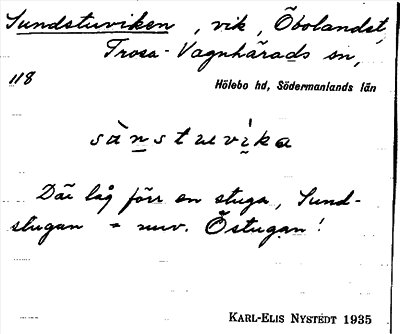 Sundstuviken, vik, Öbolandet,
Trosa-Vagnhärads sn,
118 Hölebo hd, Södermanlands län
sànstuevìka
Där låg förr en stuga, Sund-
stugan = nuv. Östugan!
KARL-ELIS NYSTEDT 1935